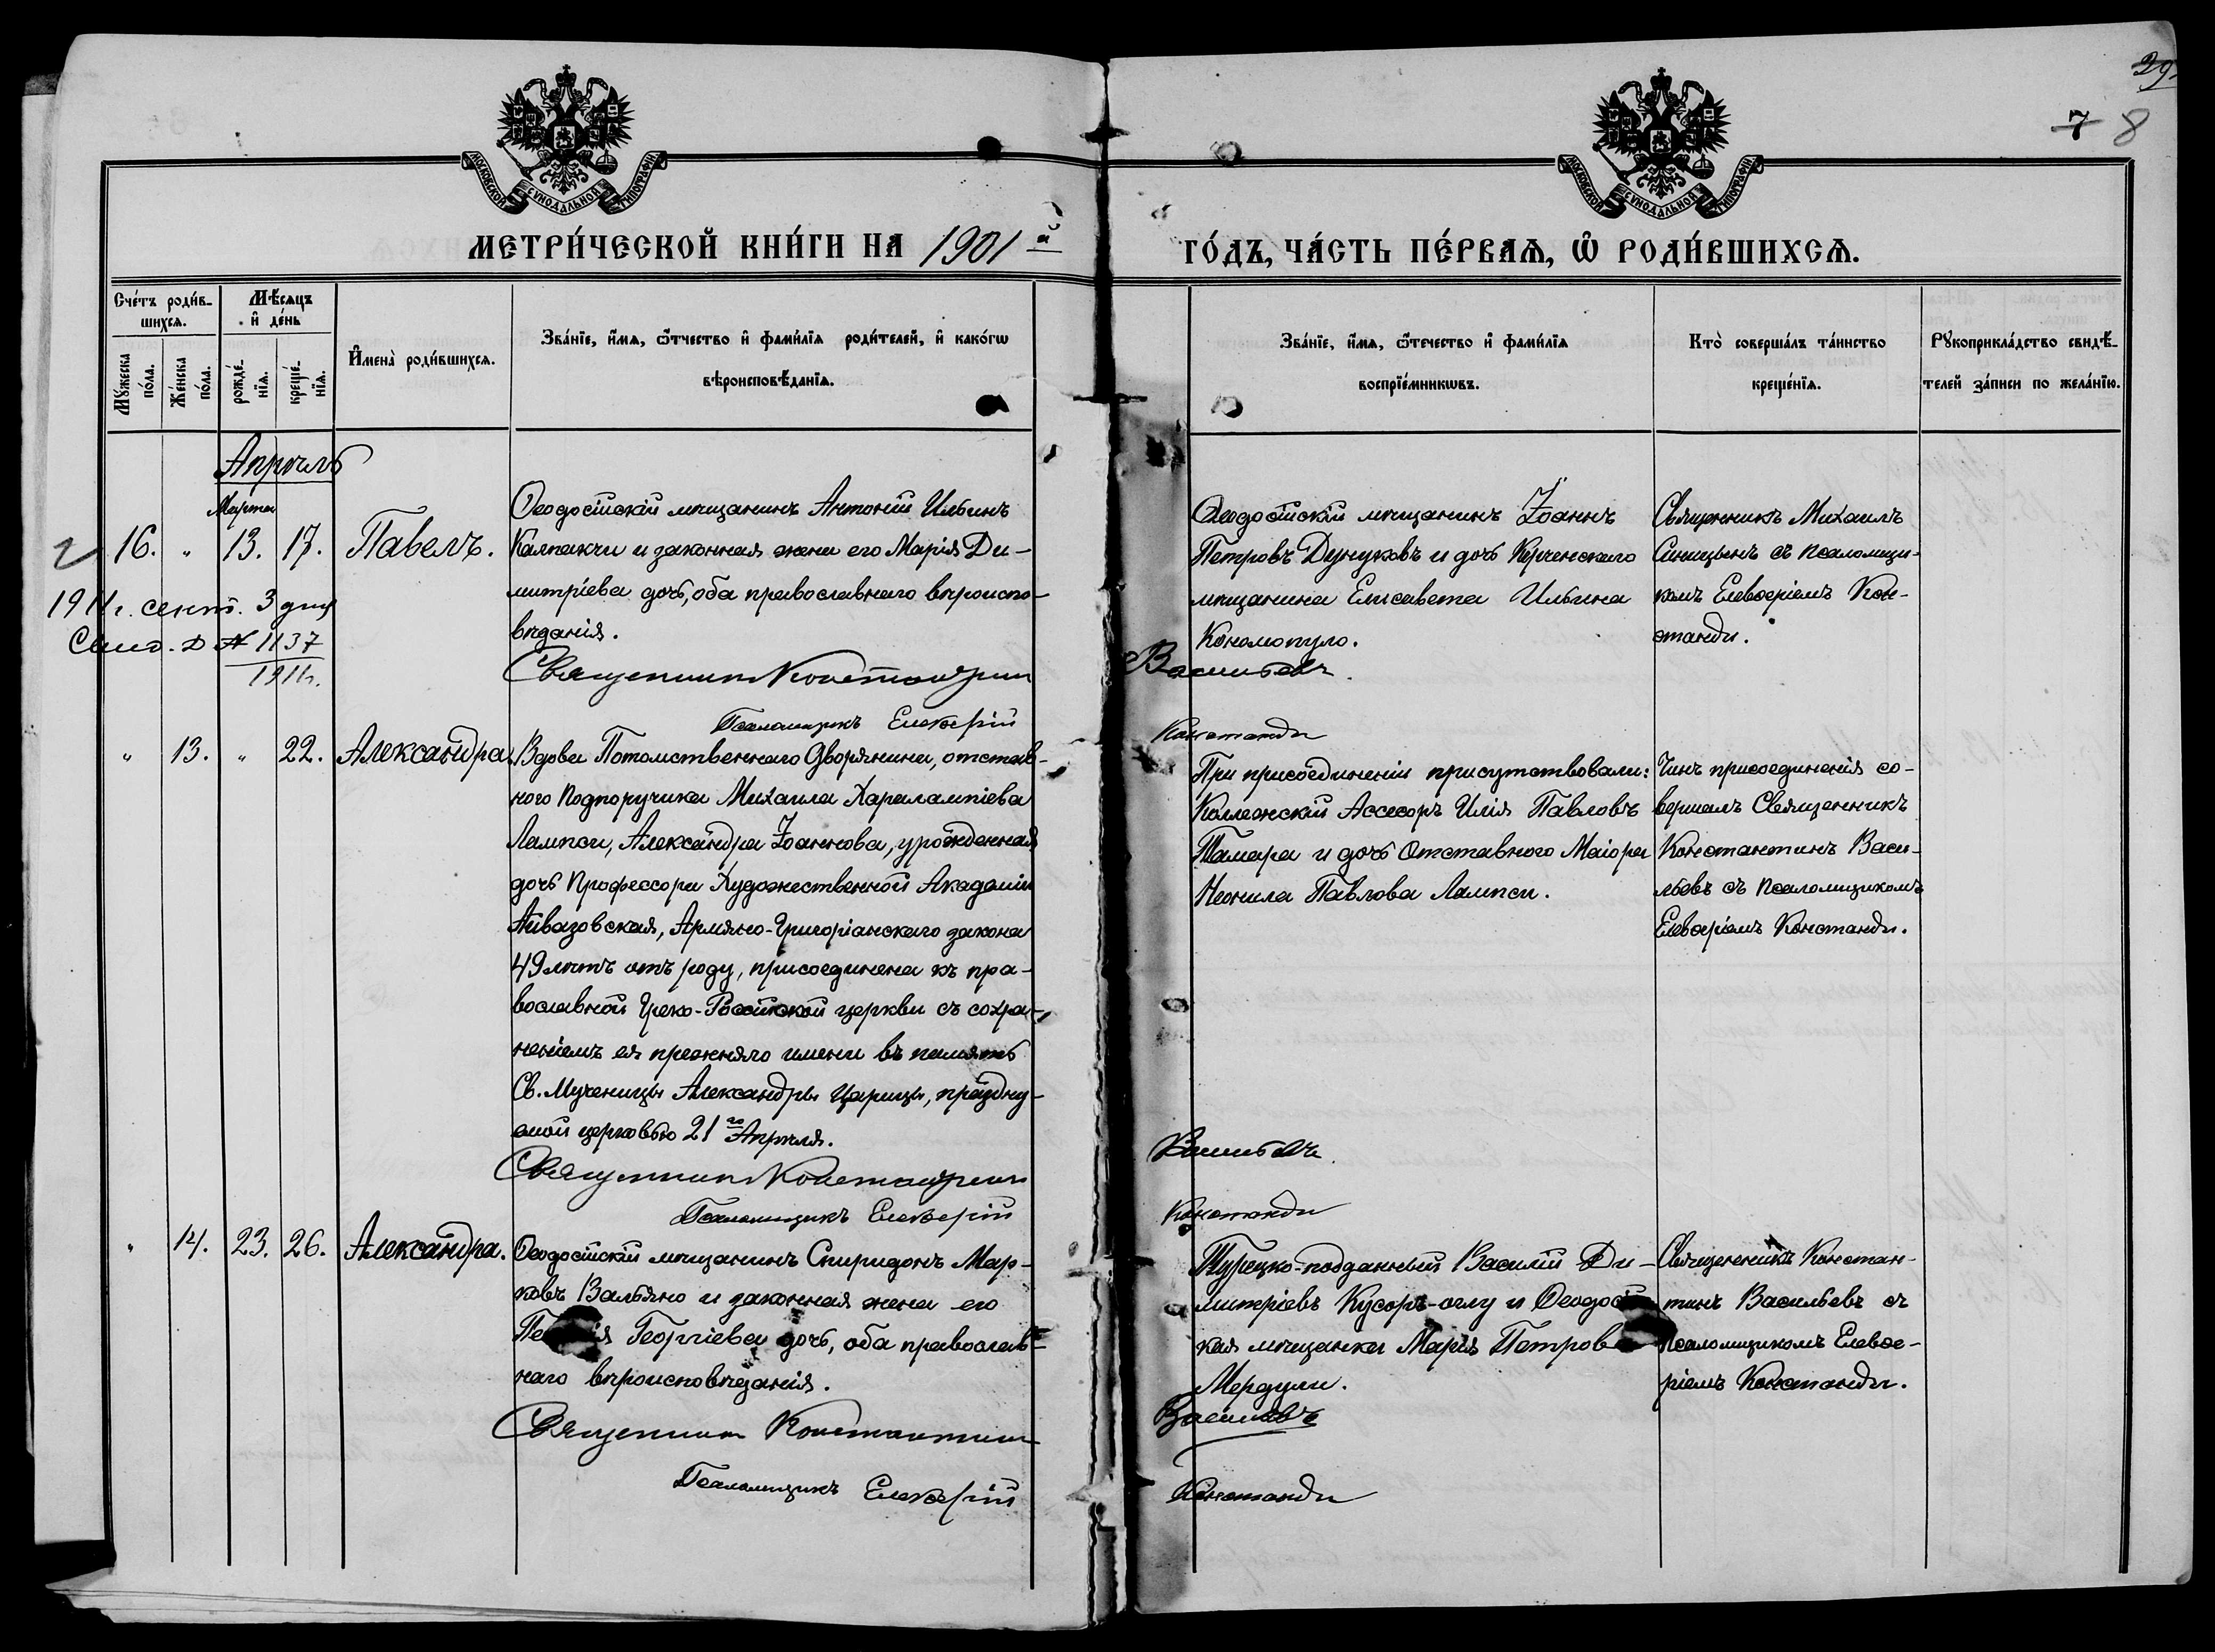 29
7 8
МОСКОВСКОЙ СѴНОДАЛЬНОЙ ТИПОГРАФІИ
МОСКОВСКОЙ СѴНОДАЛЬНОЙ ТИПОГРАФІИ
МЕТРИ́ЧЕСКОЙ КНИ́ГИ НА 1901 й ГО́ДЪ, ЧА́СТЬ ПЕ́РВАѦ, Ѿ РОДИ́ВШИХСѦ.
Сче́тъ роди́в-
шихсѧ.
Мꙋжеска
по́ла.
Же́нска
по́ла.
Мѣ́сѧцъ
и҆ де́нь
рожде́-
нїѧ.
креще́-
нїѧ.
И҆мена̀ роди́вшихсѧ.
Зва́нїе, и҆́мѧ, ѻ҆́тчество и҆ фами́лїѧ роди́телей, и҆ како́гѡ
вѣроисповѣ́данїѧ.
Зва́нїе, и҆́мѧ, ѻ҆те́чество и҆ фами́лїѧ
воспрїе́мникѡвъ.
Кто̀ соверша́лъ та́инство
креще́нїѧ.
Рꙋкоприкла́дство свидѣ́-
телей за́писи по жела́нїю.
Апрѣль
Марта
16. „ 13. 17. Павелъ.
1911 г. сент. 3 дня
Свид. Д № 1137
1911 г.
Ѳеодосійскій мѣщанинъ Антоній Ильинъ
Калпакчи и законная жена его Марія Ди-
митріева дочь, оба православнаго вѣроиспо-
вѣданія.
Священникъ Константинъ
Псаломщикъ Елевѳерій
Ѳеодосійскій мѣщанинъ Іоаннъ
Петровъ Дунуковъ и дочь Керченскаго
мѣщанина Елисавета Ильина
Кономопуло.
Васильевъ.
Констанди
Священникъ Михаилъ
Синицынъ съ псаломщи-
комъ Елевѳеріемъ Кон-
станди.
„ 13. „ 22. Александра.
Вдова Потомственнаго Дворянина, отстав-
ного Подпоручика Михаила Харалампіева
Лампси, Александра Іоаннова, урожденная
дочь Профессора Художественной Академіи
Айвазовская, Армяно-Григоріанскаго закона
49 лѣтъ отъ роду, присоединена къ пра-
вославной Греко-Россійской церкви съ сохра-
неніемъ ея прежняго имени въ память
Св. Мученицы Александры Царицы, праздну-
емой церковью 21го Апрѣля.
Священникъ Константинъ
Псаломщикъ Елевѳерій
При присоединеніи присутствовали:
Коллежскій Ассесоръ Илія Павловъ
Тамара и дочь Отставного Маіора
Неонила Павлова Лампси.
Васильевъ.
Констанди
Чинъ присоединенія со-
вершалъ Священникъ
Константинъ Васи-
льевъ съ Псаломщикомъ
Елевѳеріемъ Констанди.
„ 14. 23. 26. Александра.
Ѳеодосійскій мѣщанинъ Спиридонъ Мар-
ковъ Вальяно и законная жена его
Георгіева дочь, оба православ-
наго вѣроисповѣданія.
Священникъ Константинъ
Псаломщикъ Елевѳерій
Турецко-подданный Василій Ди-
митріевъ Кусоръ-оглу и Ѳеодосій
кая мѣщанка Марія Петрова
Мердули.
Васильевъ
Констанди
Священникъ Констан-
тинъ Васильевъ съ
Псаломщикомъ Елевѳе-
ріемъ Констанди.